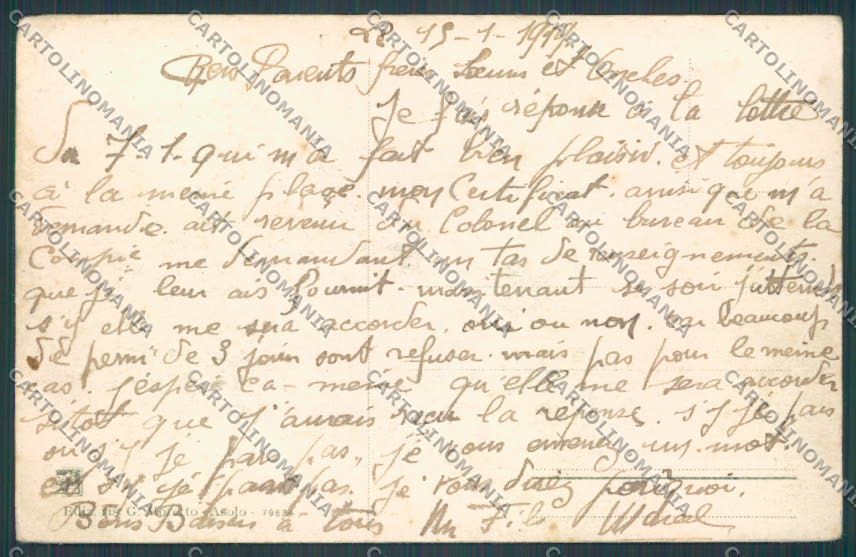 Le 15-1-1917
Chers Parents frères Soeurs et Oncles.
Je fais réponse à la lettre
Du 7-1- qui m'a fait bien plaisir. et toujours
à la meme place. mon Certificat. ainsi que m'a
demande. est revenu du Colonel au bureau de la
Compie me demandant un tas de renseignements.
que je leur ais fournit. maintenant se soir j'attends
s'y elle me sera accorder. oui ou non. car beaucoup
de permi de 3 jours sont refuser. mais pas pour le meme
cas. j'espère ca-meme qu'elle me sera accorder
sitot que j'aurais recu la reponse. s'y je pars
ou s'y je pars pas, je vous enverrez un mot.
et s'y je pars pas. je vous direz pourquoi.
Bons Baisers à tous Un Fils
Ediz. ris. G. - Asolo -
CARTOLINOMANIA